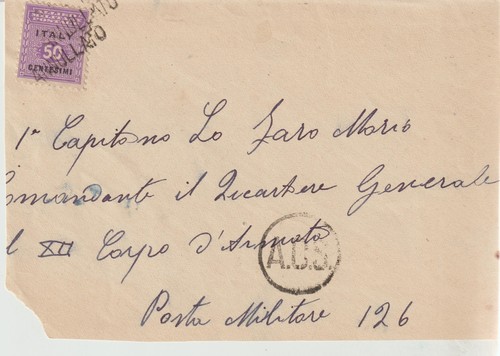 ITALY
50
CENTESIMI
ANNULLATO
1° Capitano Lo Faro Mario
Comandante il Quartiere Generale
del XII Corpo d'Armata
A.C.S.
Posta Militare 126